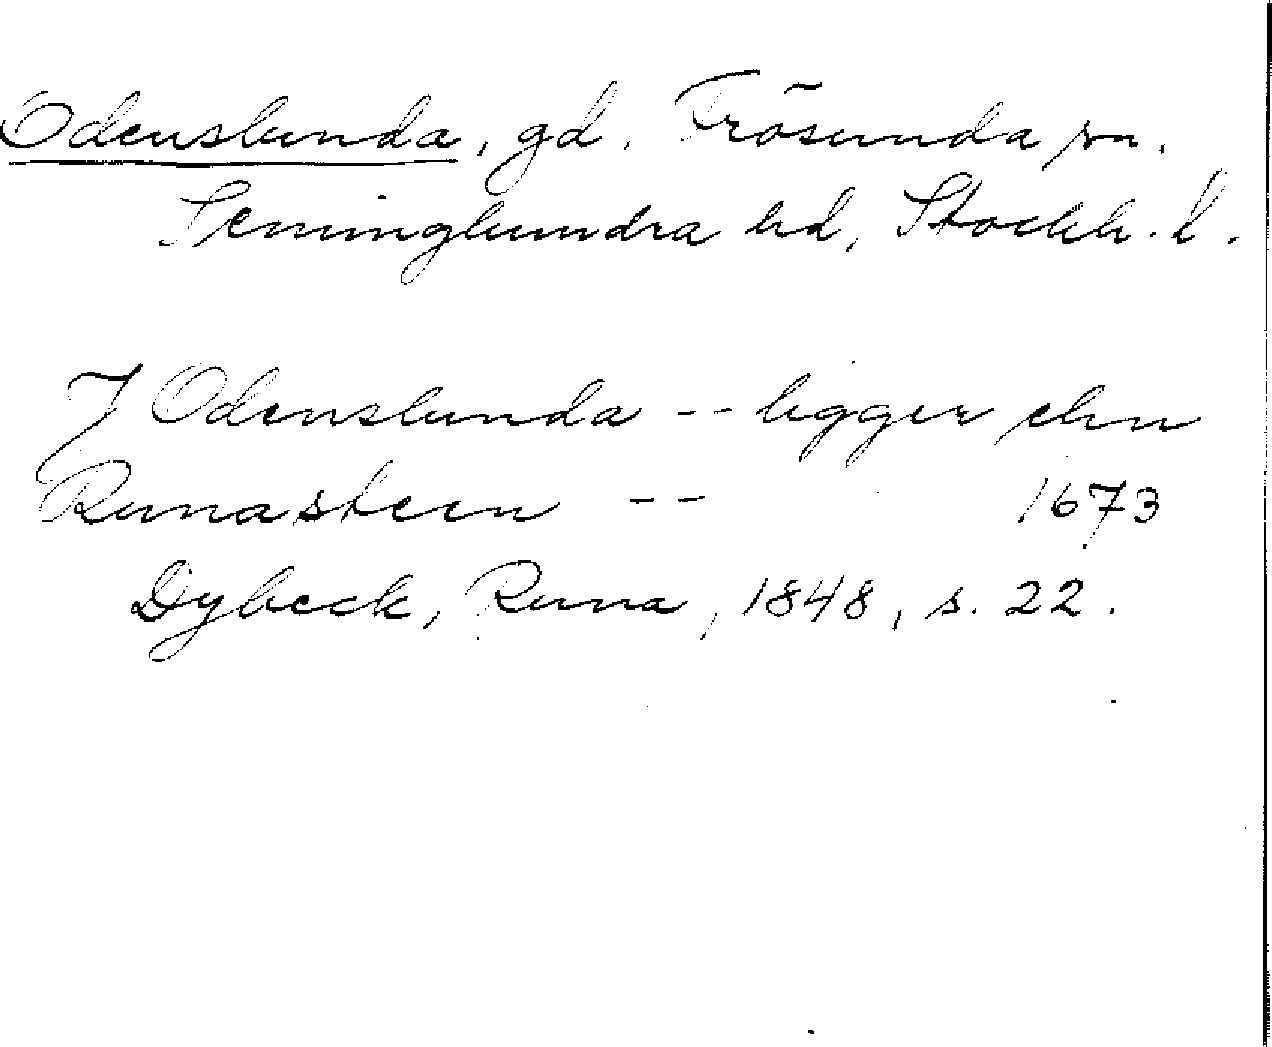 Odenslunda, gd. Frösunda sn.
Seminglundra hd, Stockh. l.
J Odenslunda -- ligger ehn
Runasteen -- 1673
Dybeck, Runa, 1848, s. 22.